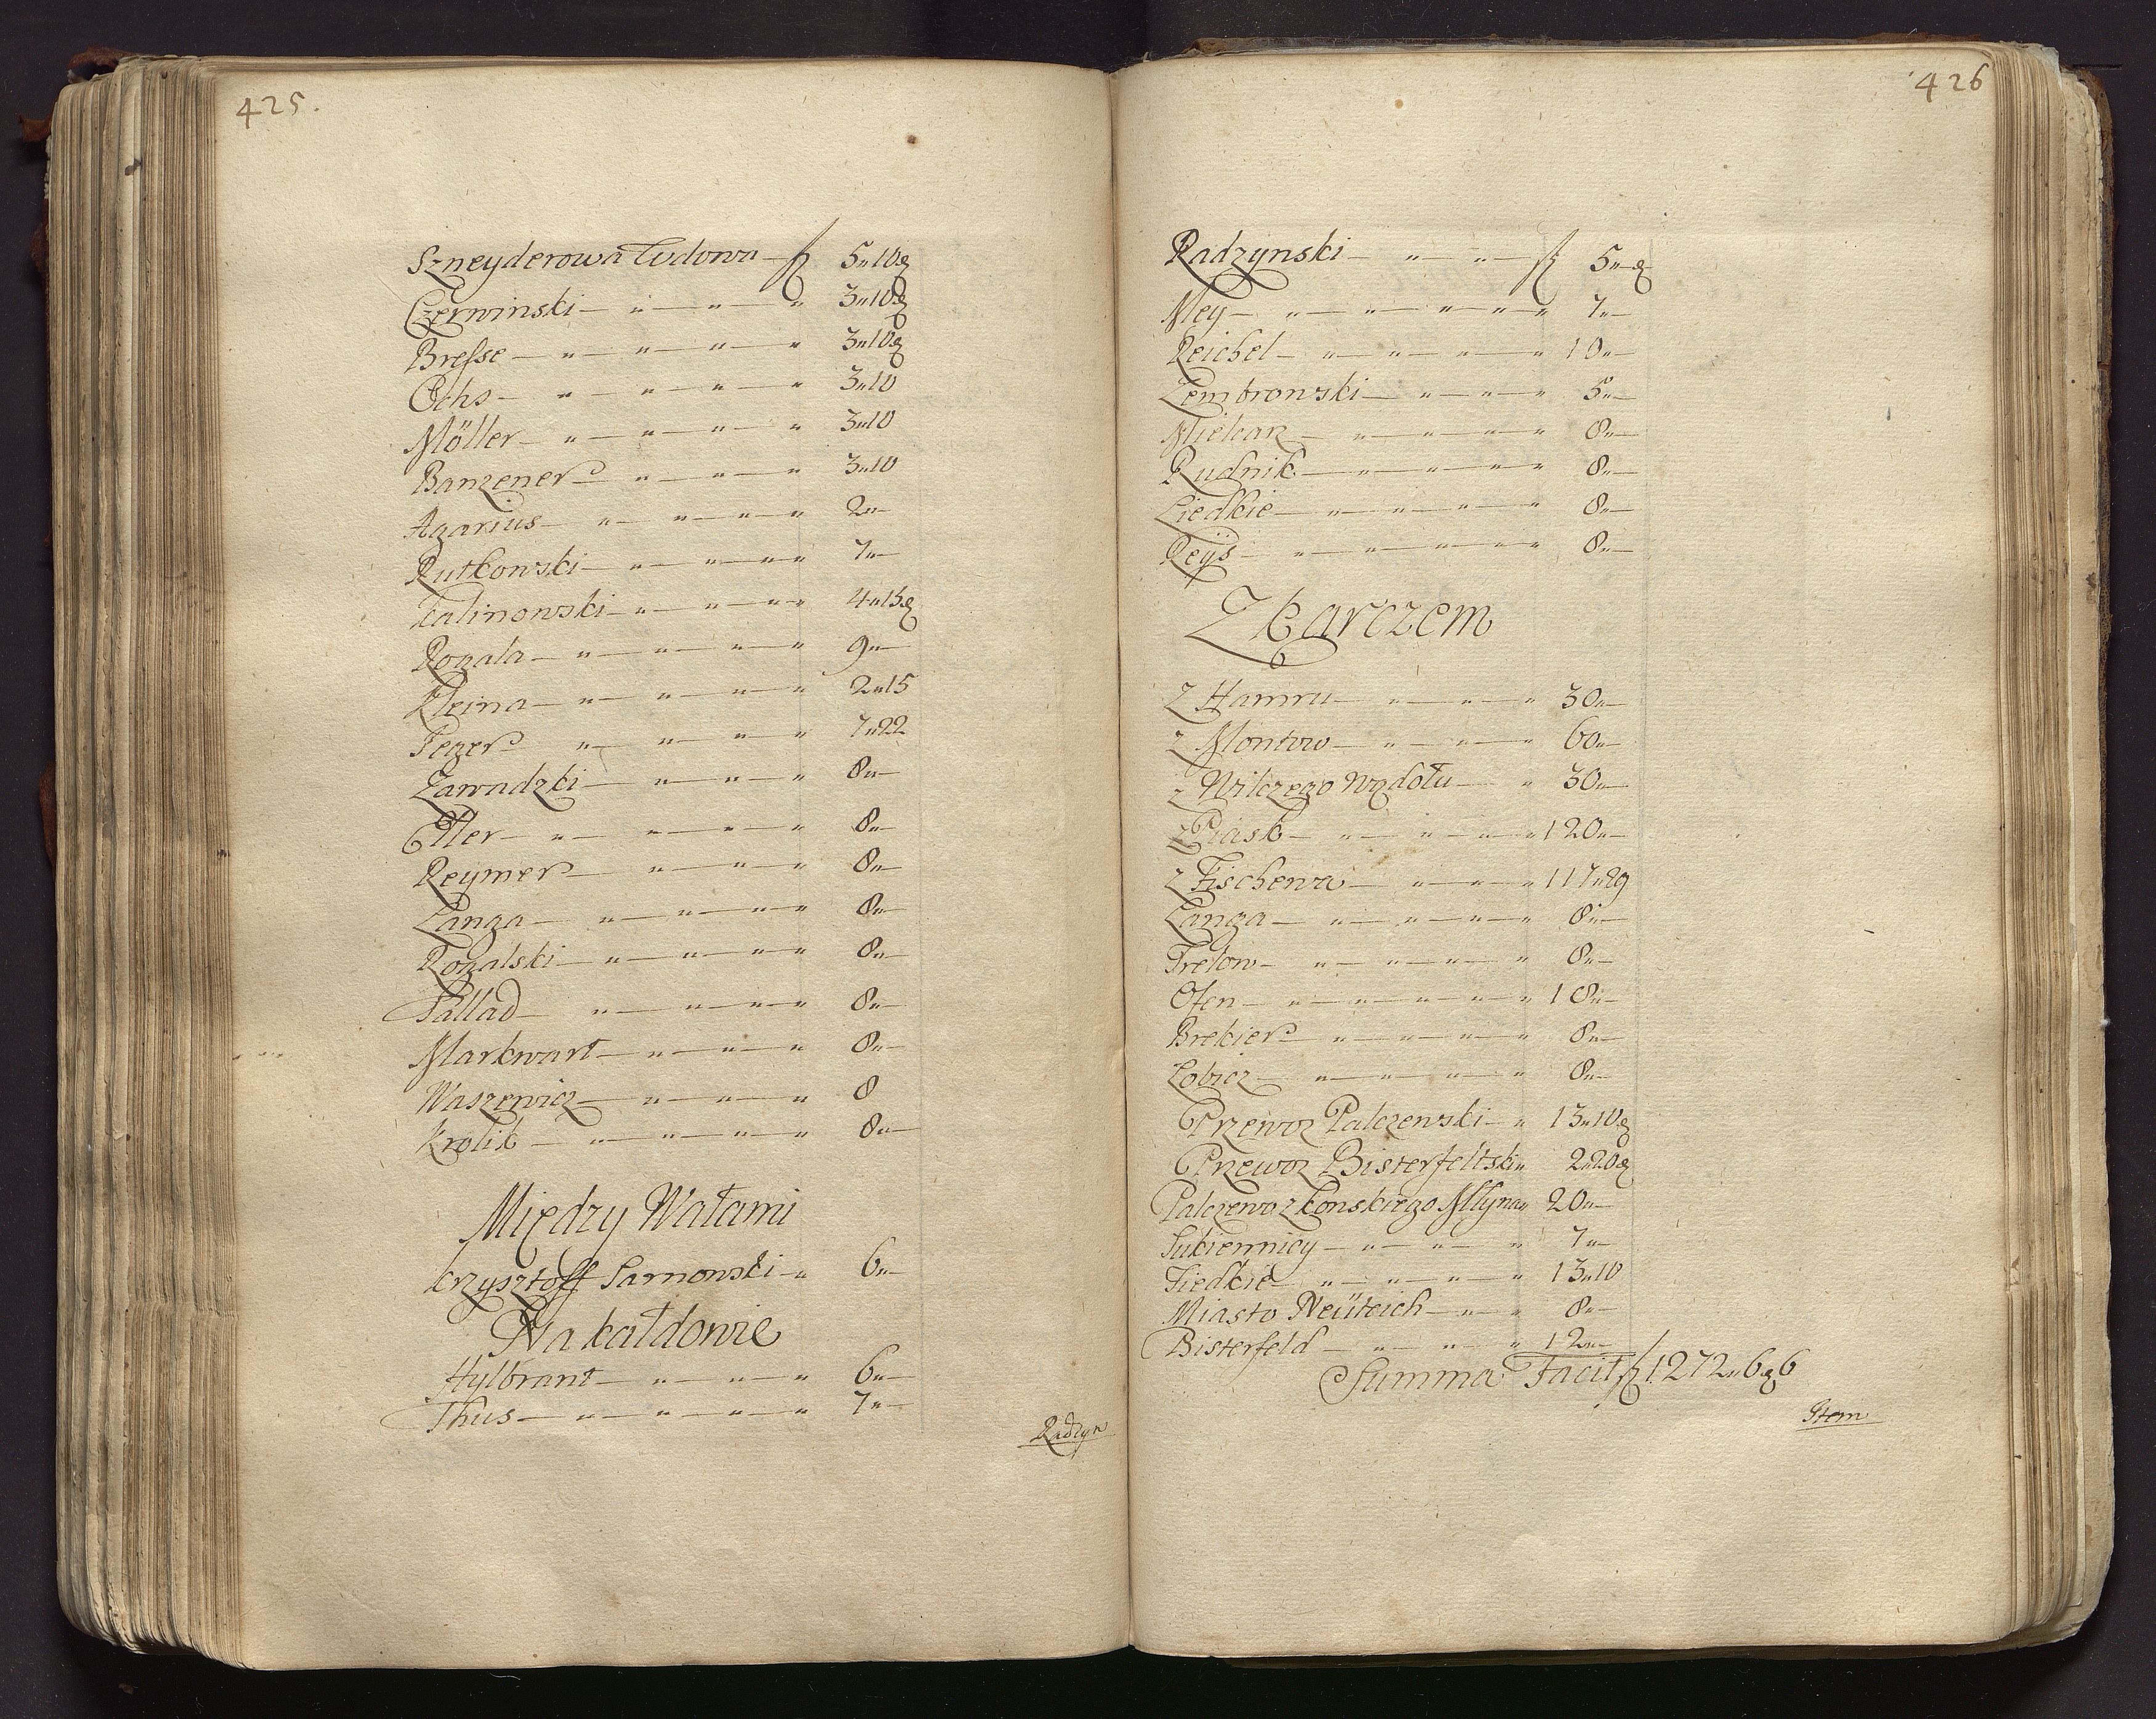 425.
Szneyderowa Wdowa — fl 5"10g
Czerwinski — " — " — " 3"10g
Bresse — " — " — " — " 3"10g
Ochs — " — " — " — " 3"10
Möller — " — " — " — " 3"10
Banzener " — " — " 3"10
Agarius — " — " — " — " 2"—
Rutkowski — " — " — " " 7"—
Kalinowski — " — " — " " 4"15g
Rogala — " — " — " — " 9"—
Kleina — " — " — " — " 2"15
Pezer " — " — " — " 7"22
Zawadzki — " — " — " 8"—
Etler — " — " — " — " 8"—
Reymer — " — " — " 8"—
Langa — " — " — " — " 8"—
Rogalski — " — " — " — " 8"—
Sallad — " — " — " — " 8"—
Markwart — " — " — " 8"—
Waszewicz — " — " — " 8
Krolik — " — " — " — " 8"—
Między Wałami
Krzysztoff Sarnowski — " 6"—
Na Kałdowie
Hylbrant — " — " — " 6"—
Thus — " — " — " — " 7"—
Radzyn
426
Radzynski — " — " — fl 5"—g
Mey — " — " — " — " — " 7"—
Reichel — " — " — " — " 10"—
Zembrowski — " — " — " 5"—
Mielcarz — " — " — " — " 8"—
Rudnik — " — " — " — " 8"—
Liedkie — " — " — " — " 8"—
Reÿs — " — " — " — " 8"—
Z Karczem
Z Hamru — " — " — " 30"—
z Montow — " — " — " 60"—
z Wilczego Wądołu — " 30"—
z Piask — " — " — " — " 120"—
z Fischewa — " — " — " 117"29
Langa — " — " — " — " 8"—
Tretow — " — " — " — " 8"—
Ofen — " — " — " — " 18"—
Brekier " — " — " — " 8"—
Lobicz — " — " — " — " 8"—
Przewoz Palczewski — " 13"10g
Przewoz Bisterfeltski " 2"20g
Palczewa z Konskiego Młyna " 20"—
Sukiennicy — " — " — " 7"—
Fiedkie — " — " — " — " 13"10
Miasto Neüteich — " — " 8"—
Bisterfeld — " — " — " 12"—
Summa Facit fl 1272"6g6
Item